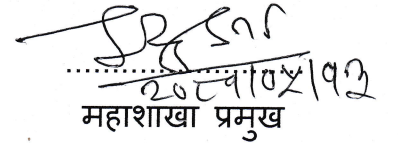 २०८१/०५/१३
महाशाखा प्रमुख